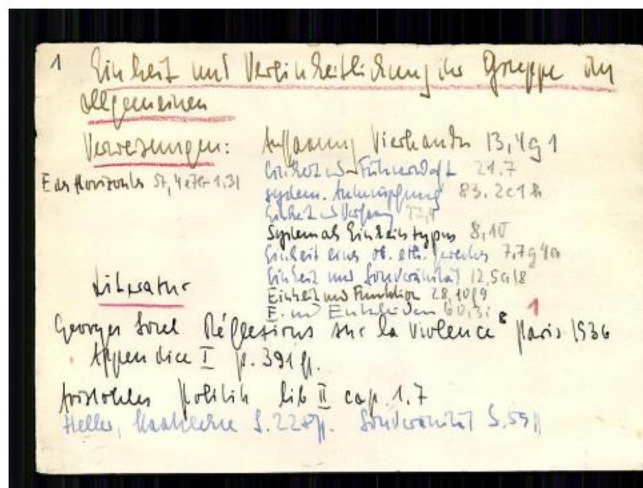 1 Einheit und Vereinheitlichung der Gruppe im
allgemeinen
Verweisungen: Auffassung Vierkandts 13,4g1
Einheit u. Führerschaft 21.7
E des Horizonts 57,4e7G-1,31
system. Anknüpfung 83.2c1
Einheit u. Verfassung
System als Einheitstypus 8,10
Einheit eines ob. eth. Zweckes 7,7g4a
Einheit und Souveränität 12,5a18
Literatur
Einheit und Funktion 28,10f9
E. und 60,3i 1
Georges Sorel Réflexions sur la violence 8 Paris 1936
Appendice I p. 391 ff.
Aristoteles Politik lib II cap. 1.7
Heller, Staatslehre S. 228ff. Souveränität S. 59ff